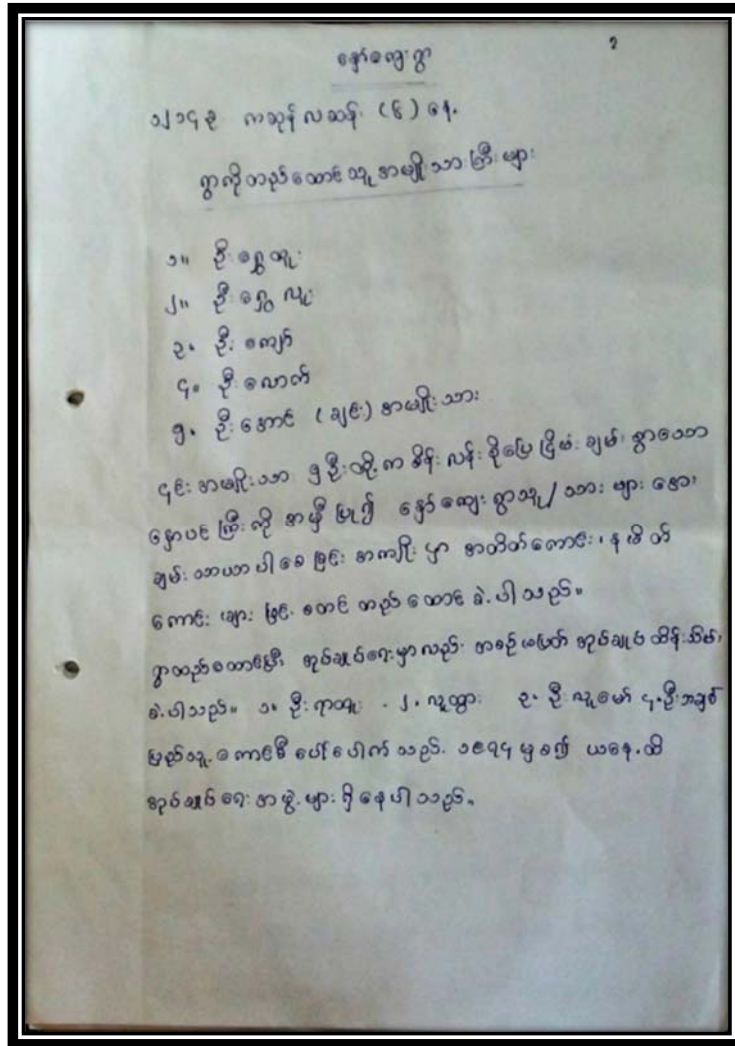 နှော်ကျေးရွာ ၃
၁၂၁၄ ခု ကဆုန်လဆန်း (၆) နေ့
ရွာကိုတည်ထောင်သူ အမျိုးသားကြီးများ
၁။ ဦးရွှေထူး
၂။ ဦးရွှေလူး
၃။ ဦးကျော်
၄။ ဦးလောက်
၅။ ဦးအောင် (ချင်း) အမျိုးသား
၎င်းအမျိုးသား ၅ဦးတို့က စိမ်းလန်းစိုပြေ ငြိမ်းချမ်းစွာသော
နှောပင်ကြီးကို အမှီပြု၍ နှော်ကျေးရွာသူ/သားများ အေး
ချမ်းသာယာပါစေခြင်း အကျိုးငှာ အတိတ်ကောင်း၊ နမိတ်
ကောင်းများဖြင့် စတင်တည်ထောင်ခဲ့ပါသည်။
ရွာတည်ထောင်ပြီး အုပ်ချုပ်ရေးမှာလည်း အစဉ်မပြတ် အုပ်ချုပ်ထိန်းသိမ်း
ခဲ့ပါသည်။ ၁။ ဦးရာထူး ၂။ လူထွား ၃။ ဦးလူမော် ၄။ ဦးအချစ်
ပြည်သူ့ကောင်စီ ပေါ်ပေါက်သည့် ၁၉၇၄ မှစ၍ ယနေ့ထိ
အုပ်ချုပ်ရေးအဖွဲ့များ ရှိနေပါသည်။